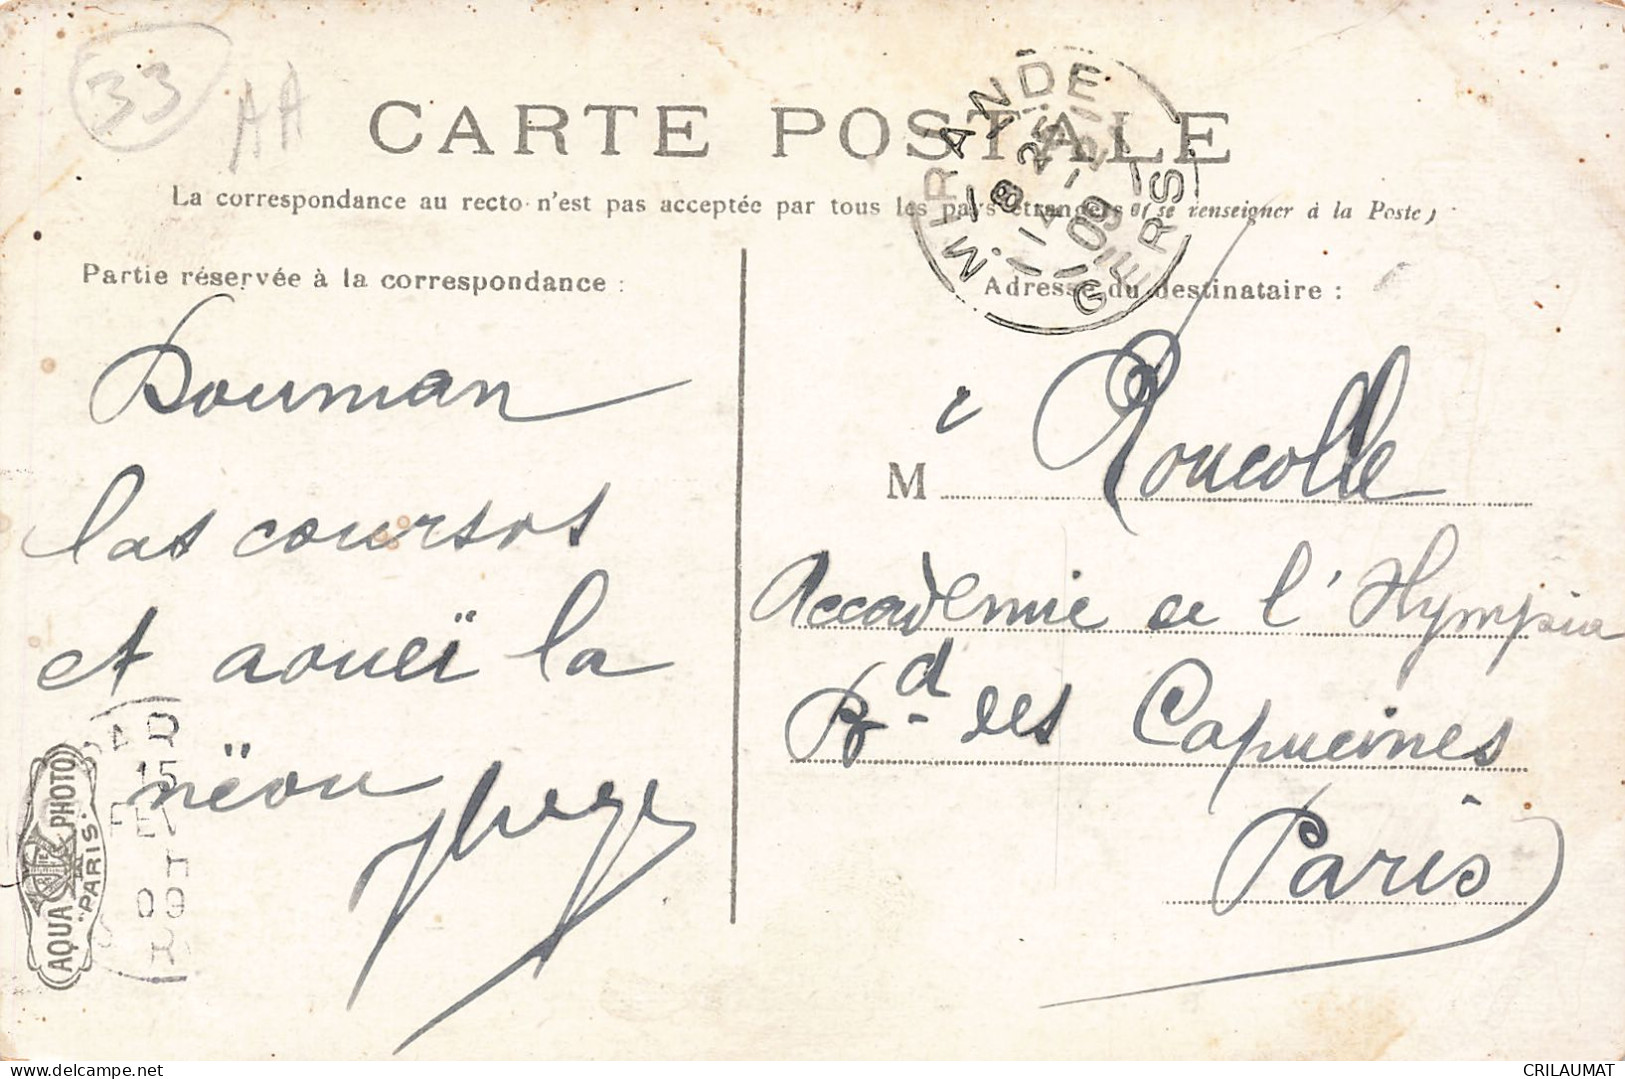 33 AA
CARTE POSTALE
La correspondance au recto n'est pas acceptée par tous les pays étrangers (se renseigner à la Poste)
MIRANDE
8 25
14 - 2
09
GERS
Partie réservée à la correspondance :
Douman
las coursos
et aoueï la
nëou
Adresse du destinataire :
M Roucolle
Accadémie de l'Hympia
Bd des Capucines
Paris
PAR
15
FEV
09
AQUA PHOTO
"PARIS"
www.delcampe.net
CRILAUMAT